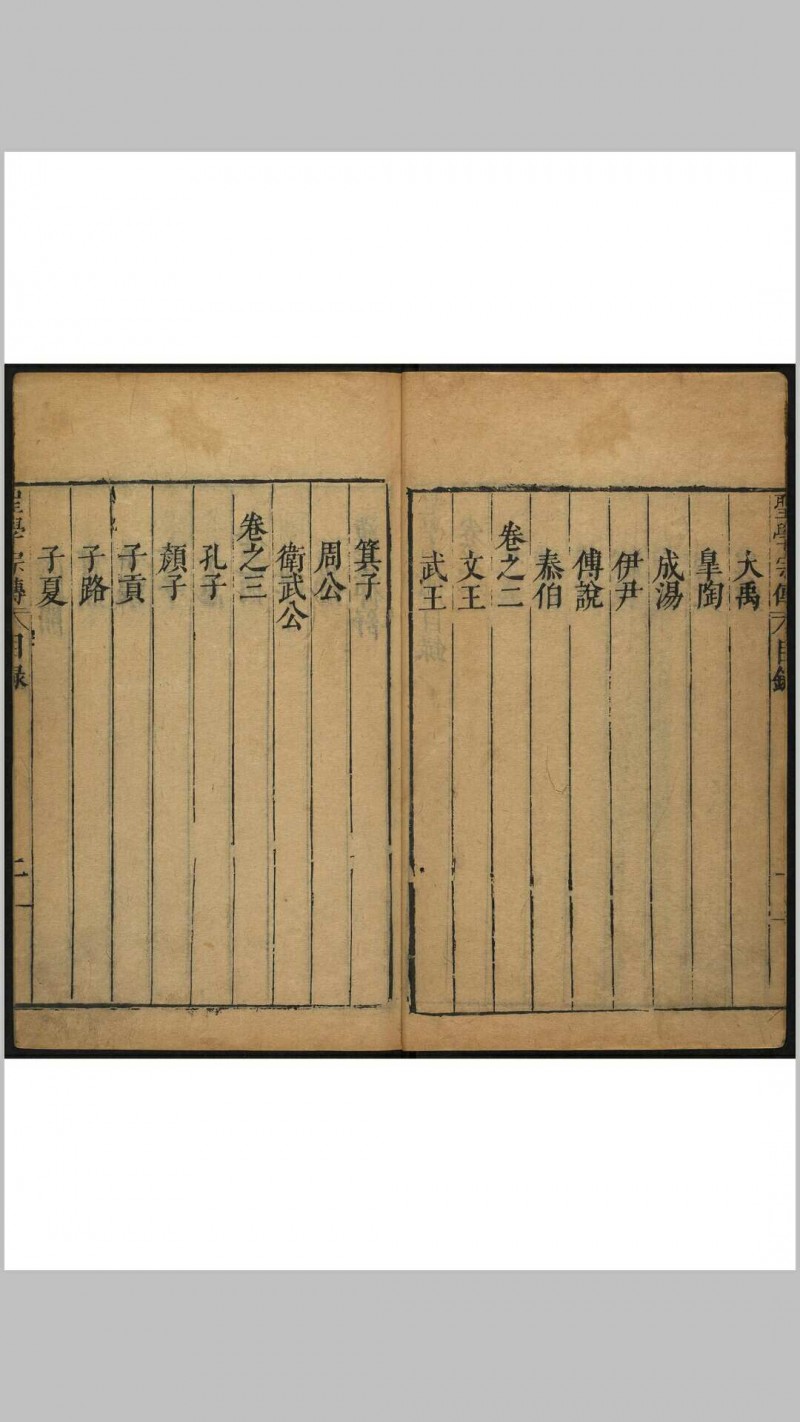 聖學宗傳 目錄
大禹
皐陶
成湯
伊尹
傅說
卷之二
泰伯
文王
武王
箕子
周公
衛武公
卷之三
孔子
顏子
子貢
子路
子夏
聖學宗傳 目錄